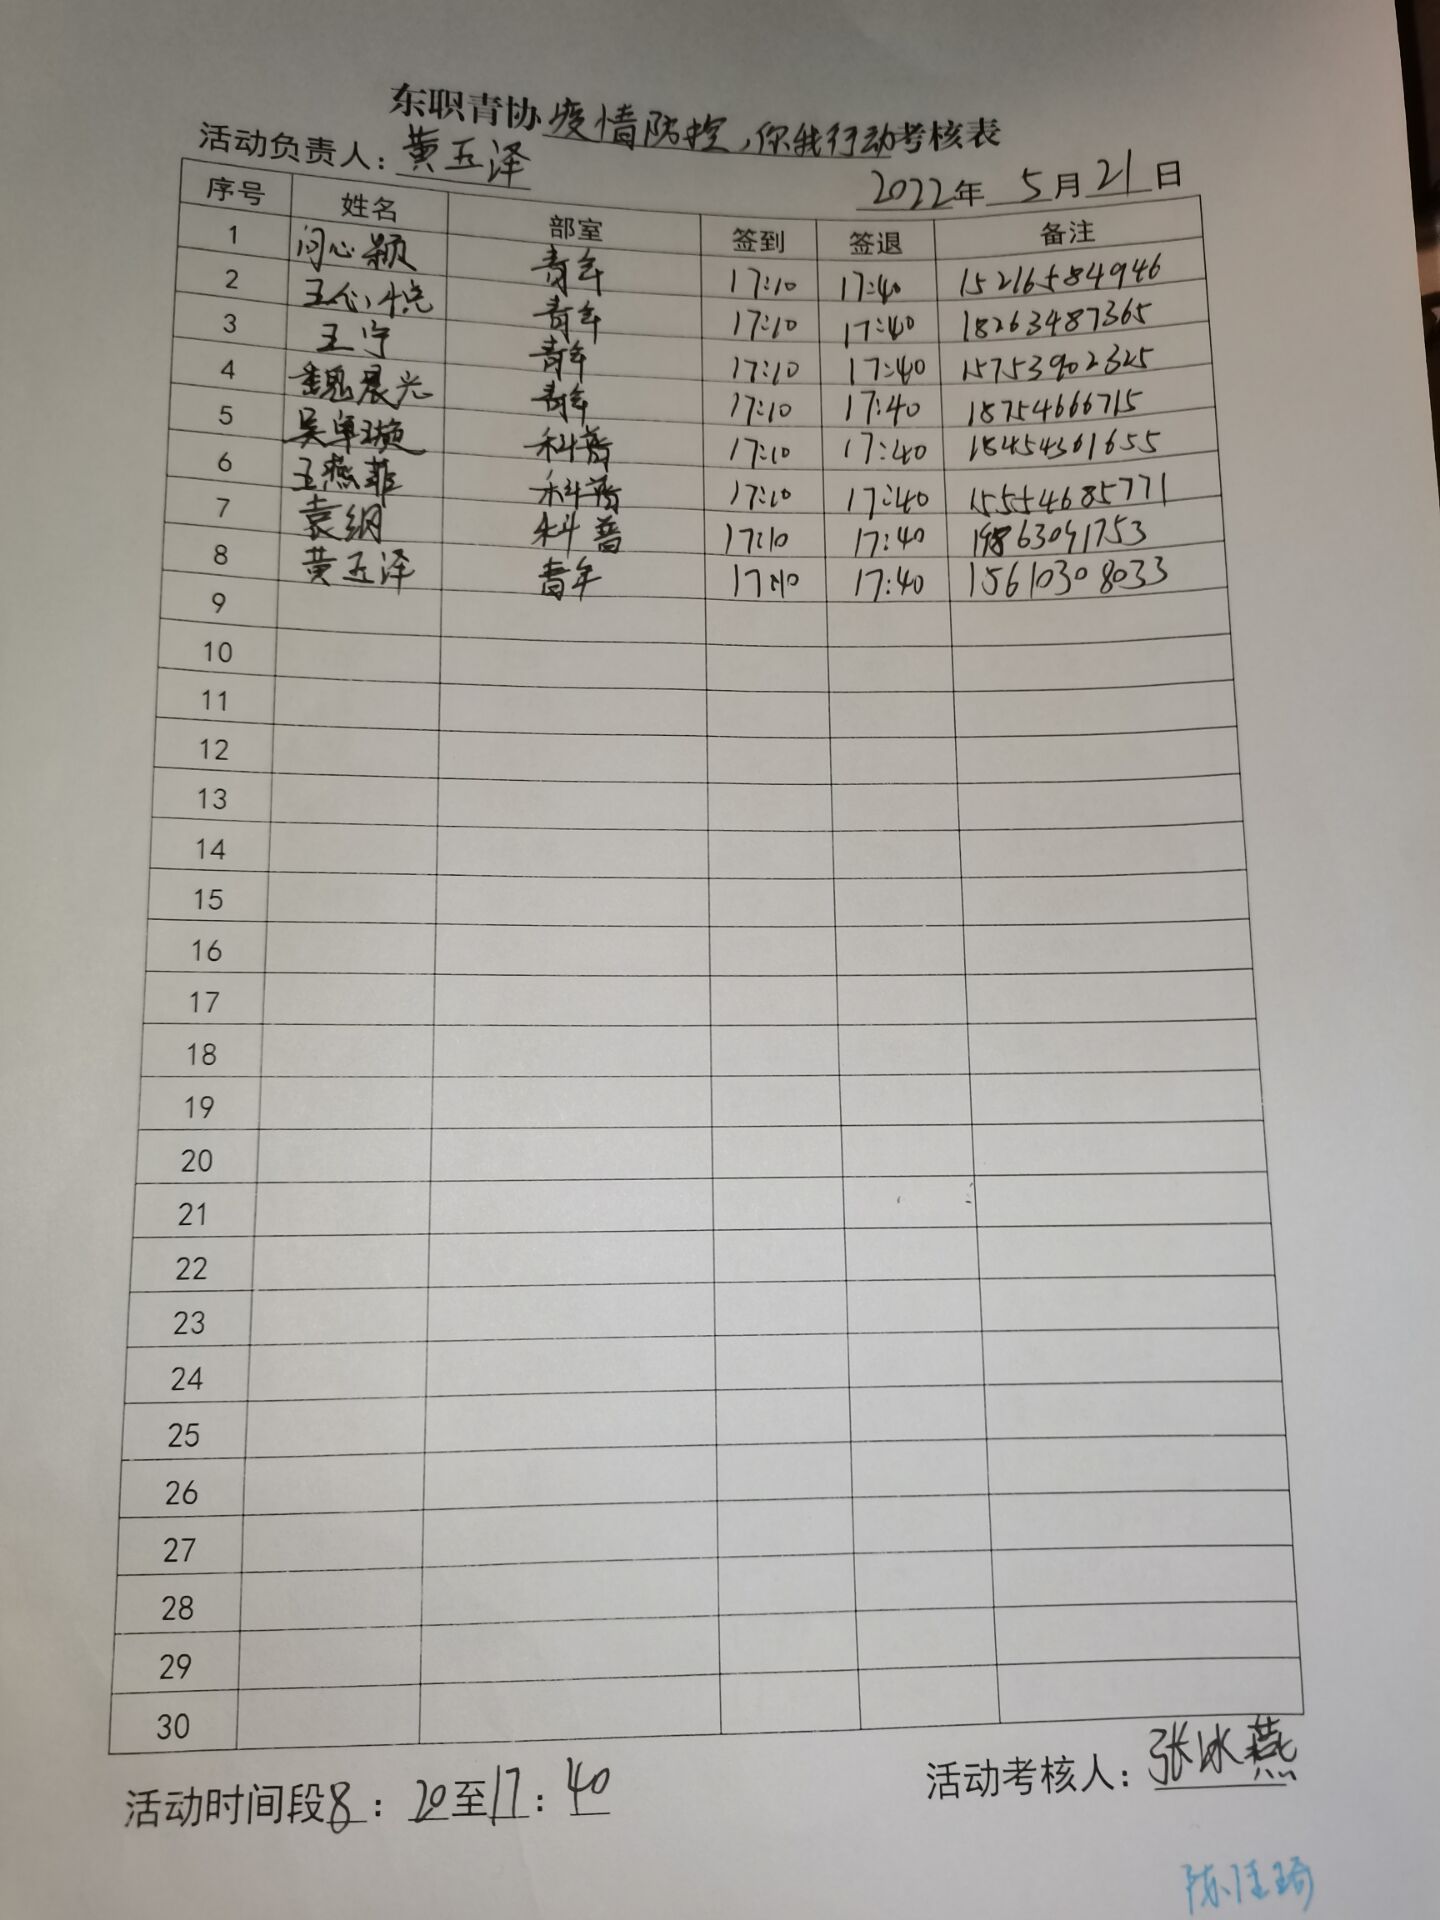 东职青协疫情防控，你我行动考核表
活动负责人：黄五泽
2022年 5月21日
序号 姓名 部室 签到 签退 备注
1 闫心颖 青年 17:10 17:40 15216584946
2 王心悦 青年 17:10 17:40 18263487365
3 王宁 青年 17:10 17:40 15753902325
4 魏晨光 青年 17:10 17:40 18754666715
5 吴卓璇 科普 17:10 17:40 18454361655
6 王燕菲 科普 17:10 17:40 15554685771
7 袁纲 科普 17:10 17:40 19863091753
8 黄五泽 青年 17:10 17:40 15610308033
9
10
11
12
13
14
15
16
17
18
19
20
21
22
23
24
25
26
27
28
29
30
活动时间段8：20至17：40 活动考核人：张冰燕
陈佳琦